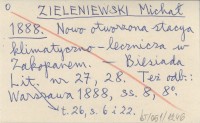 0
ZIELENIEWSKI Michał
1888. Nowo otworzona stacya
klimatyczno-lecznicza w
Zakopanem. — Biesiada
Lit. nr 27, 28. Też odb.:
Warszawa 1888, ss. 8, 8°.
t. 26, s. 6 i 22.